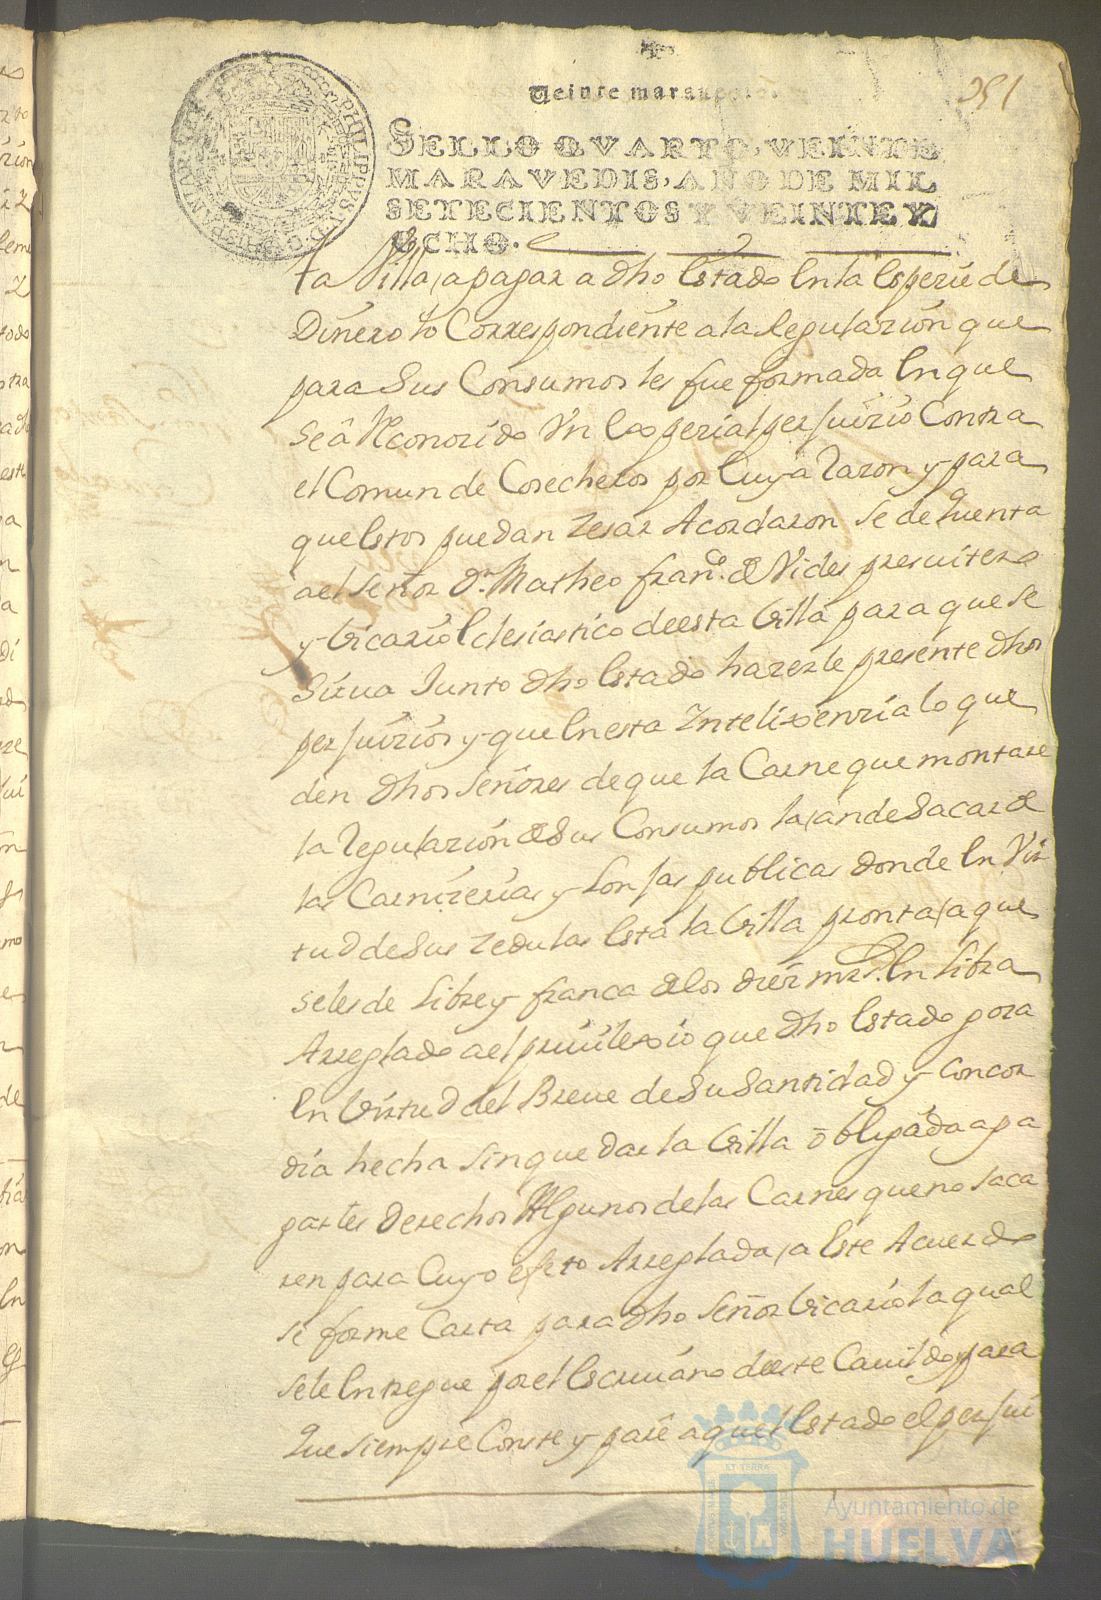 251
Veinte marauedis.
SELLO QVARTO, VEINTE
MARAVEDIS, AÑO DE MIL
SETECIENTOS Y VEINTE Y
OCHO.
ta Villa, a pagar a dho Estado En la Espezie de
Dinero lo Correspondiente a la Regulazion que
para Sus Consumos les fue formada En que
se â Reconozido Vn Expezial perjuizio Contra
el Comun de Cosecheros por Cuya Razon y para
que Estos puedan Zesar Acordaron se de quenta
a el señor Dn. Matheo franco. de Vides presuitero
y Vicario Eclesiastico de esta Villa para que se
sirua Junto dho Estado hazerle presente dhos
perjuizios y que En esta Intelixenzia lo que
den dhos señores de que la Carne que montare
la Regulazion de Sus Consumos la an de Sacar de
las Carnizerias y Lonjas publicas donde En Vir
tud de Sus Zedulas Esta la Villa pronta, a que
se les de Libre y franca de los diez mrs. En Libra
Arreglado a el priuilexio que dho Estado goza
En Virtud del Breue de Su Santidad y Concor
dia hecha sin quedar la Villa obligada a pa
garles derechos Algunos de las Carnes que no saca
ren para Cuyo efeto Arreglada, a Este Acuerdo
se forme Carta para dho Señor Vicario la qual
se le Entregue por el Escriuano de este Cauildo y para
Que siempre Conste y pare a quel Estado el perjui
Ayuntamiento de
HUELVA